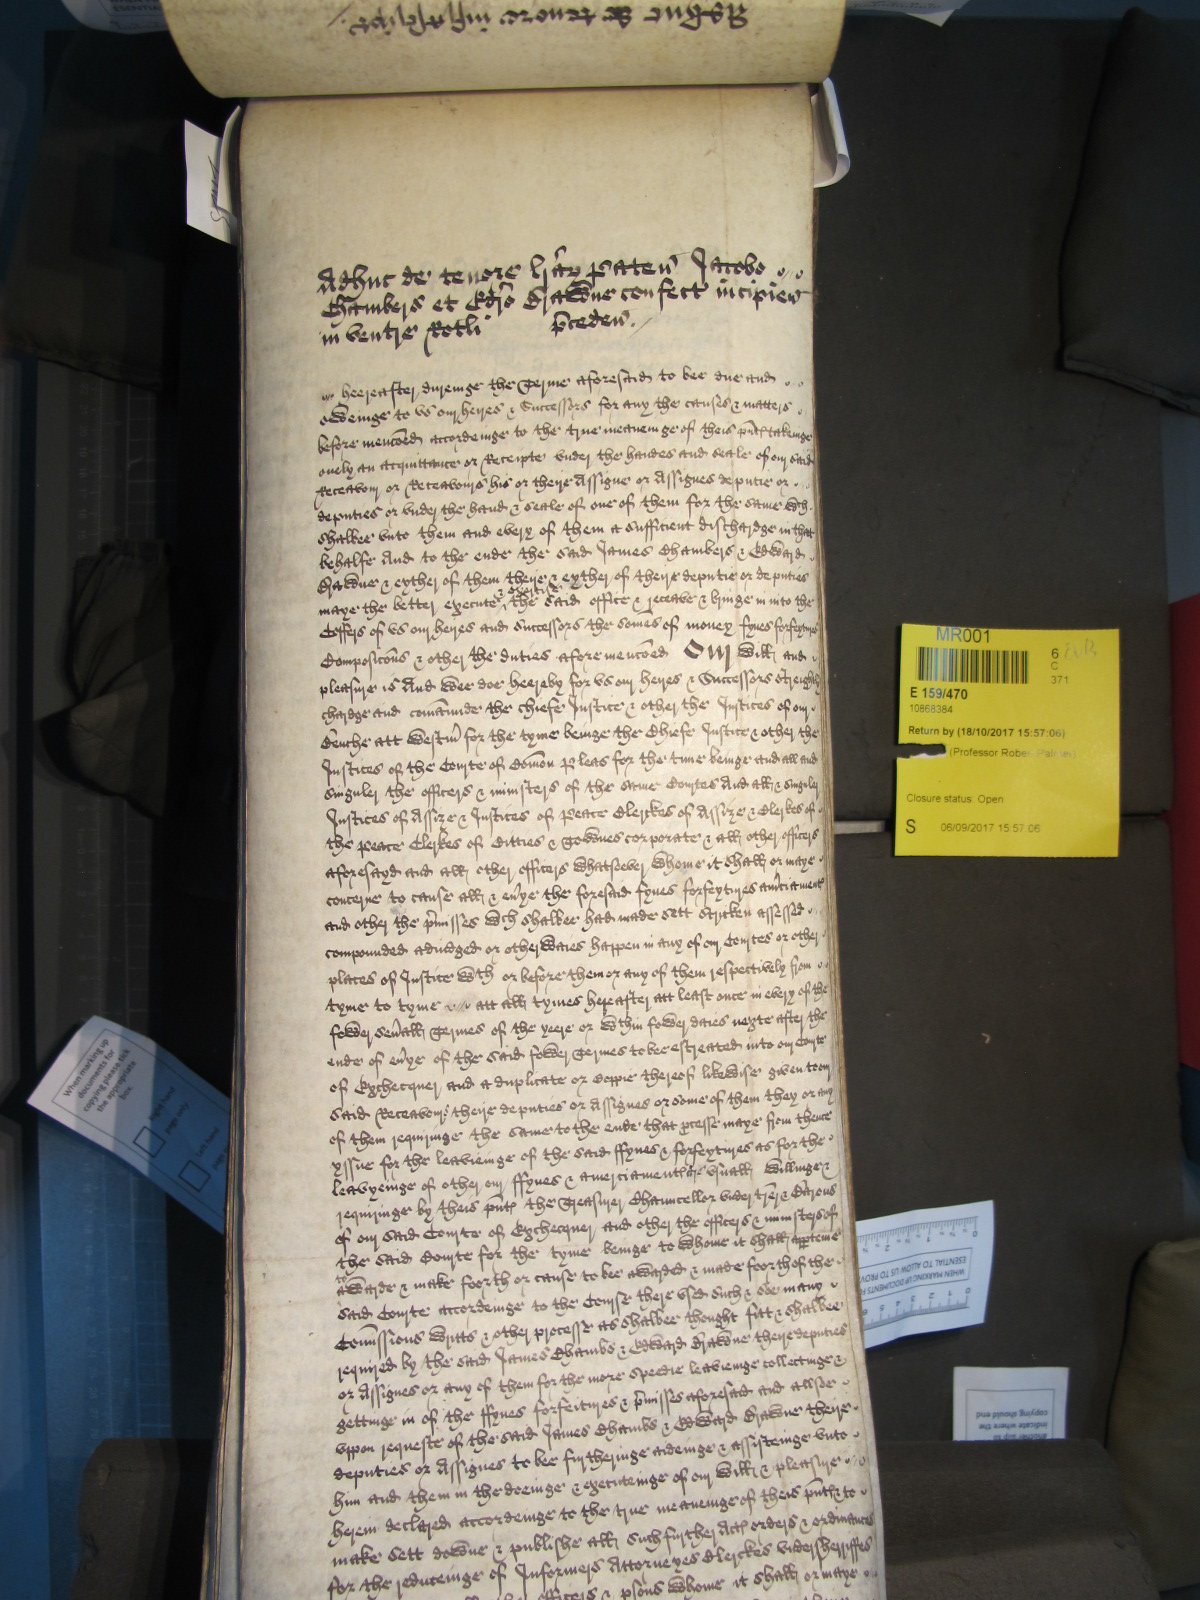 Adhuc de tenore lrar paten Jacobo
Chambers et Edro Drawne confect incipien
in ventre Rotli preceden.
heereafter dureinge the Terme aforesaid to bee due and
oweinge to vs our heires & Successors for any the causes & matters
before menconed accordeinge to the true meaneinge of theis pnts takeinge
onely an acquittance or Receipte vnder the handes and seale of our said
Receavour or Receavours his or their Assigne or Assignes deputie or
deputies or vnder the hand & seale of one of them for the same wch
shalbee vnto them and every of them a sufficient dischardge in that
behalfe And to the ende the said James Chambers & Edward
Drawne & eyther of them theire & eyther of theire deputie or deputies
maye the better execute & exercise the said office & receave & bringe in into the
Coffers of vs our heires and Successors the somes of money fynes forfeytures
Composicons & other the duties aforemenconed Our will and
pleasure is And wee doe heereby for vs our heires & Successors streightly
chardge and comaunde the chiefe Justice & other the Justices of our
Benche att Westm for the tyme beinge the Chiefe Justice & other the
Justices of the Courte of Comon pleas for the time beinge and all and
singuler the officers & ministers of the same Courtes And all & singuler
Justices of Assize & Justices of peace Clerckes of Assize & Clerkes of
the peace Clerkes of Citties & Townes corporate & all other officers
aforesayd and all other officers whatsoever whome it shall or maye
concerne to cause all & evye the foresaid fynes forfeytures amciaments
and other the pmisses wch shalbee had made sett stricken assessed
compounded adiudged or otherwaies happen in any of our Courtes or other
places of Justice wth or before them or any of them respectively from
tyme to tyme att all tymes hereafter att least once in every of the
fower sevall Termes of the yeere or wthin fower daies nexte after the
ende of evye of the said fower Termes to bee estreated into our Courte
of Exchecquer and a duplicate or Coppie thereof likewise given to our
said Receavours theire deputies or Assignes or some of them they or any
of them requiringe the same to the ende that pcesse maye from thence
yssue for the leavieinge of the said ffynes & forfeytures as for the
leavyeinge of other our ffynes & amerciaments is vsuall Willinge &
requiringe by theis pnts the Treasurer Chauncellor vndertrer & Barons
of our said Courte of Exchecquer and other the officers & ministers of
the said Courte for the tyme beinge to whome it shall apptaine
to awarde & make foorth or cause to bee awarded & made foorth of the
said Courte accordeinge to the Course there vsed such & soe many
Comissions writts & other processe as shalbee thought fitt & shalbee
required by the said James Chambs & Edward Drawne theire deputies
or Assignes or any of them for the more speedie leavieinge collectinge &
gettinge in of the ffynes forfeitures & pmisses aforesaid and allsoe
vppon requeste of the said James Chambs & Edward Drawne theire
deputies or Assignes to bee furtheringe aideinge & assisteinge vnto
him and them in the doeinge & executeinge of our will & pleasure
herein declared accordeinge to the true meaneinge of theis pnts & to
make sett downe & publishe all such further Acts orders & ordinances
for the reduceinge of Informers Attorneyes Clerckes vndersherriffes
officers & psons whome it shall or maye
MR001
6
C
371
E 159/470
10868384
Return by (18/10/2017 15:57:06)
(Professor Robert Palmer)
Closure status: Open
S 06/09/2017 15:57:06
When marking up
documents for
copying please tick
the appropriate
box.
Right hand
page only
Left hand
page
WHEN MARKING UP DOCUMENTS
ESENTIAL TO ALLOW US TO PROV
another slip to
indicate where the
copying should end